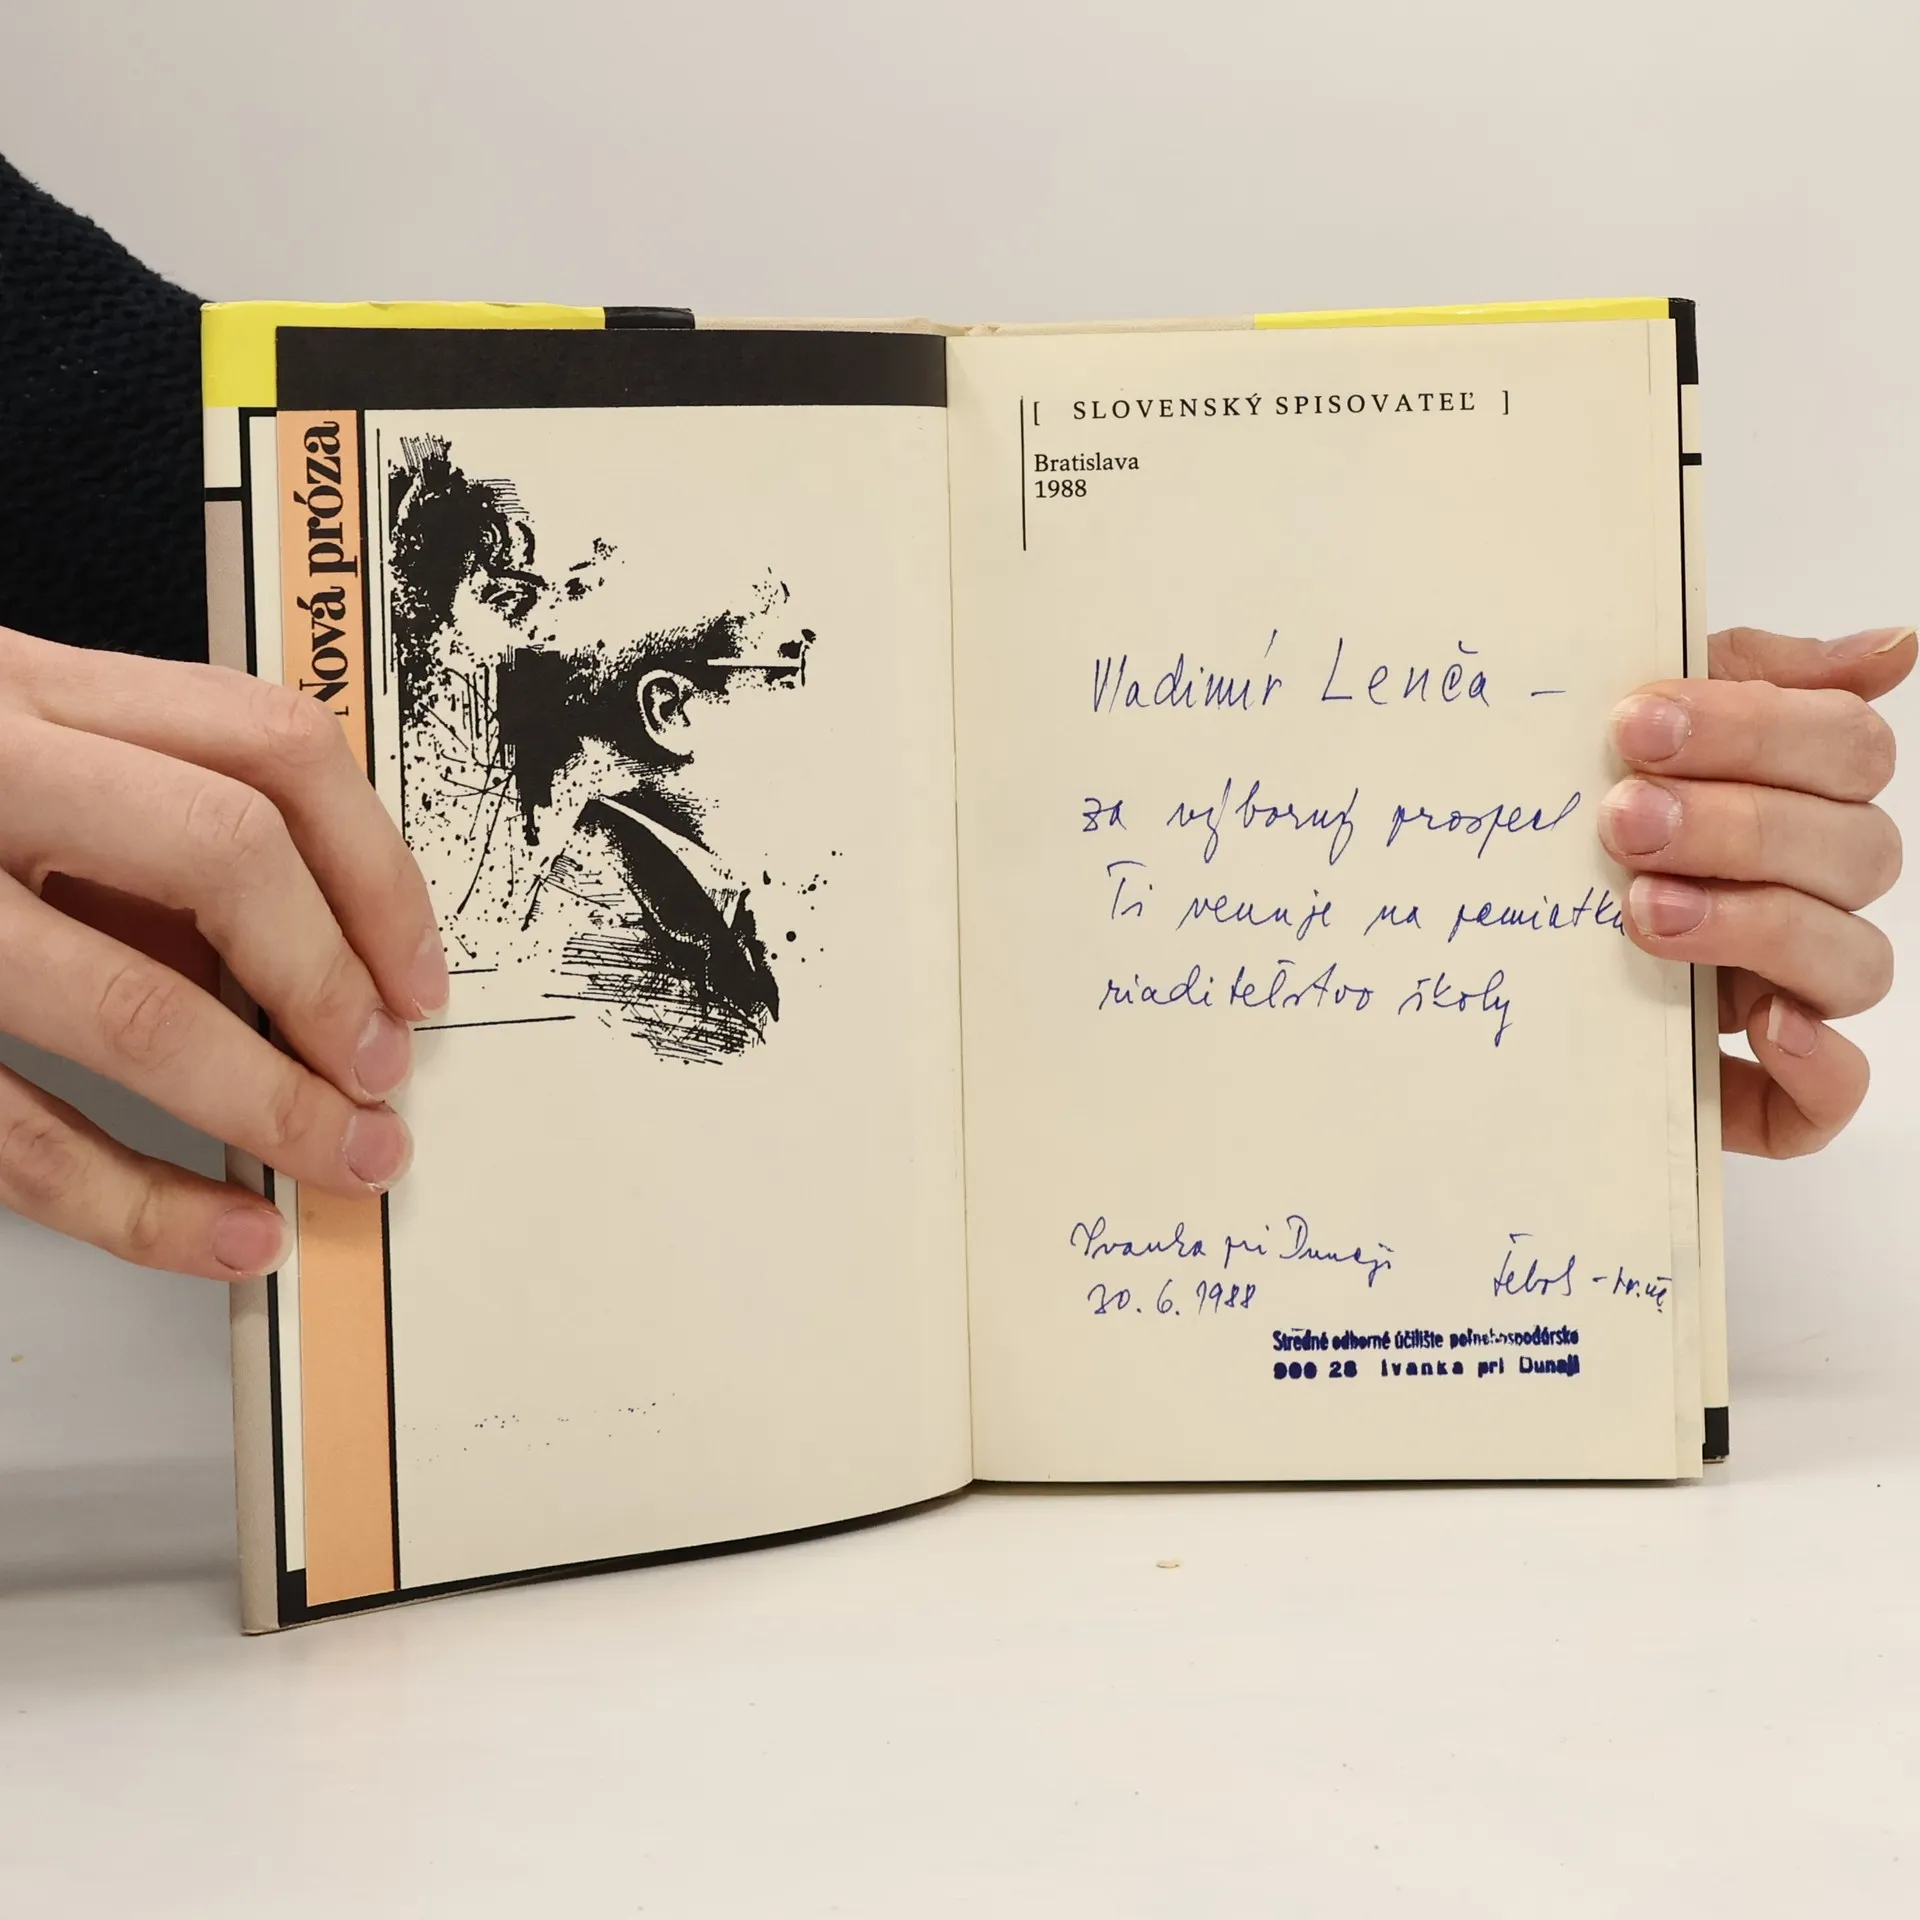 Nová próza
[ SLOVENSKÝ SPISOVATEĽ ]
Bratislava
1988
Vladimír Lenča –
za výborný prospech
Ti venuje na pamiatku
riaditeľstvo školy
Ivanka pri Dunaji
30. 6. 1988
Stredné odborné učilište poľnohospodárske
900 28 Ivanka pri Dunaji